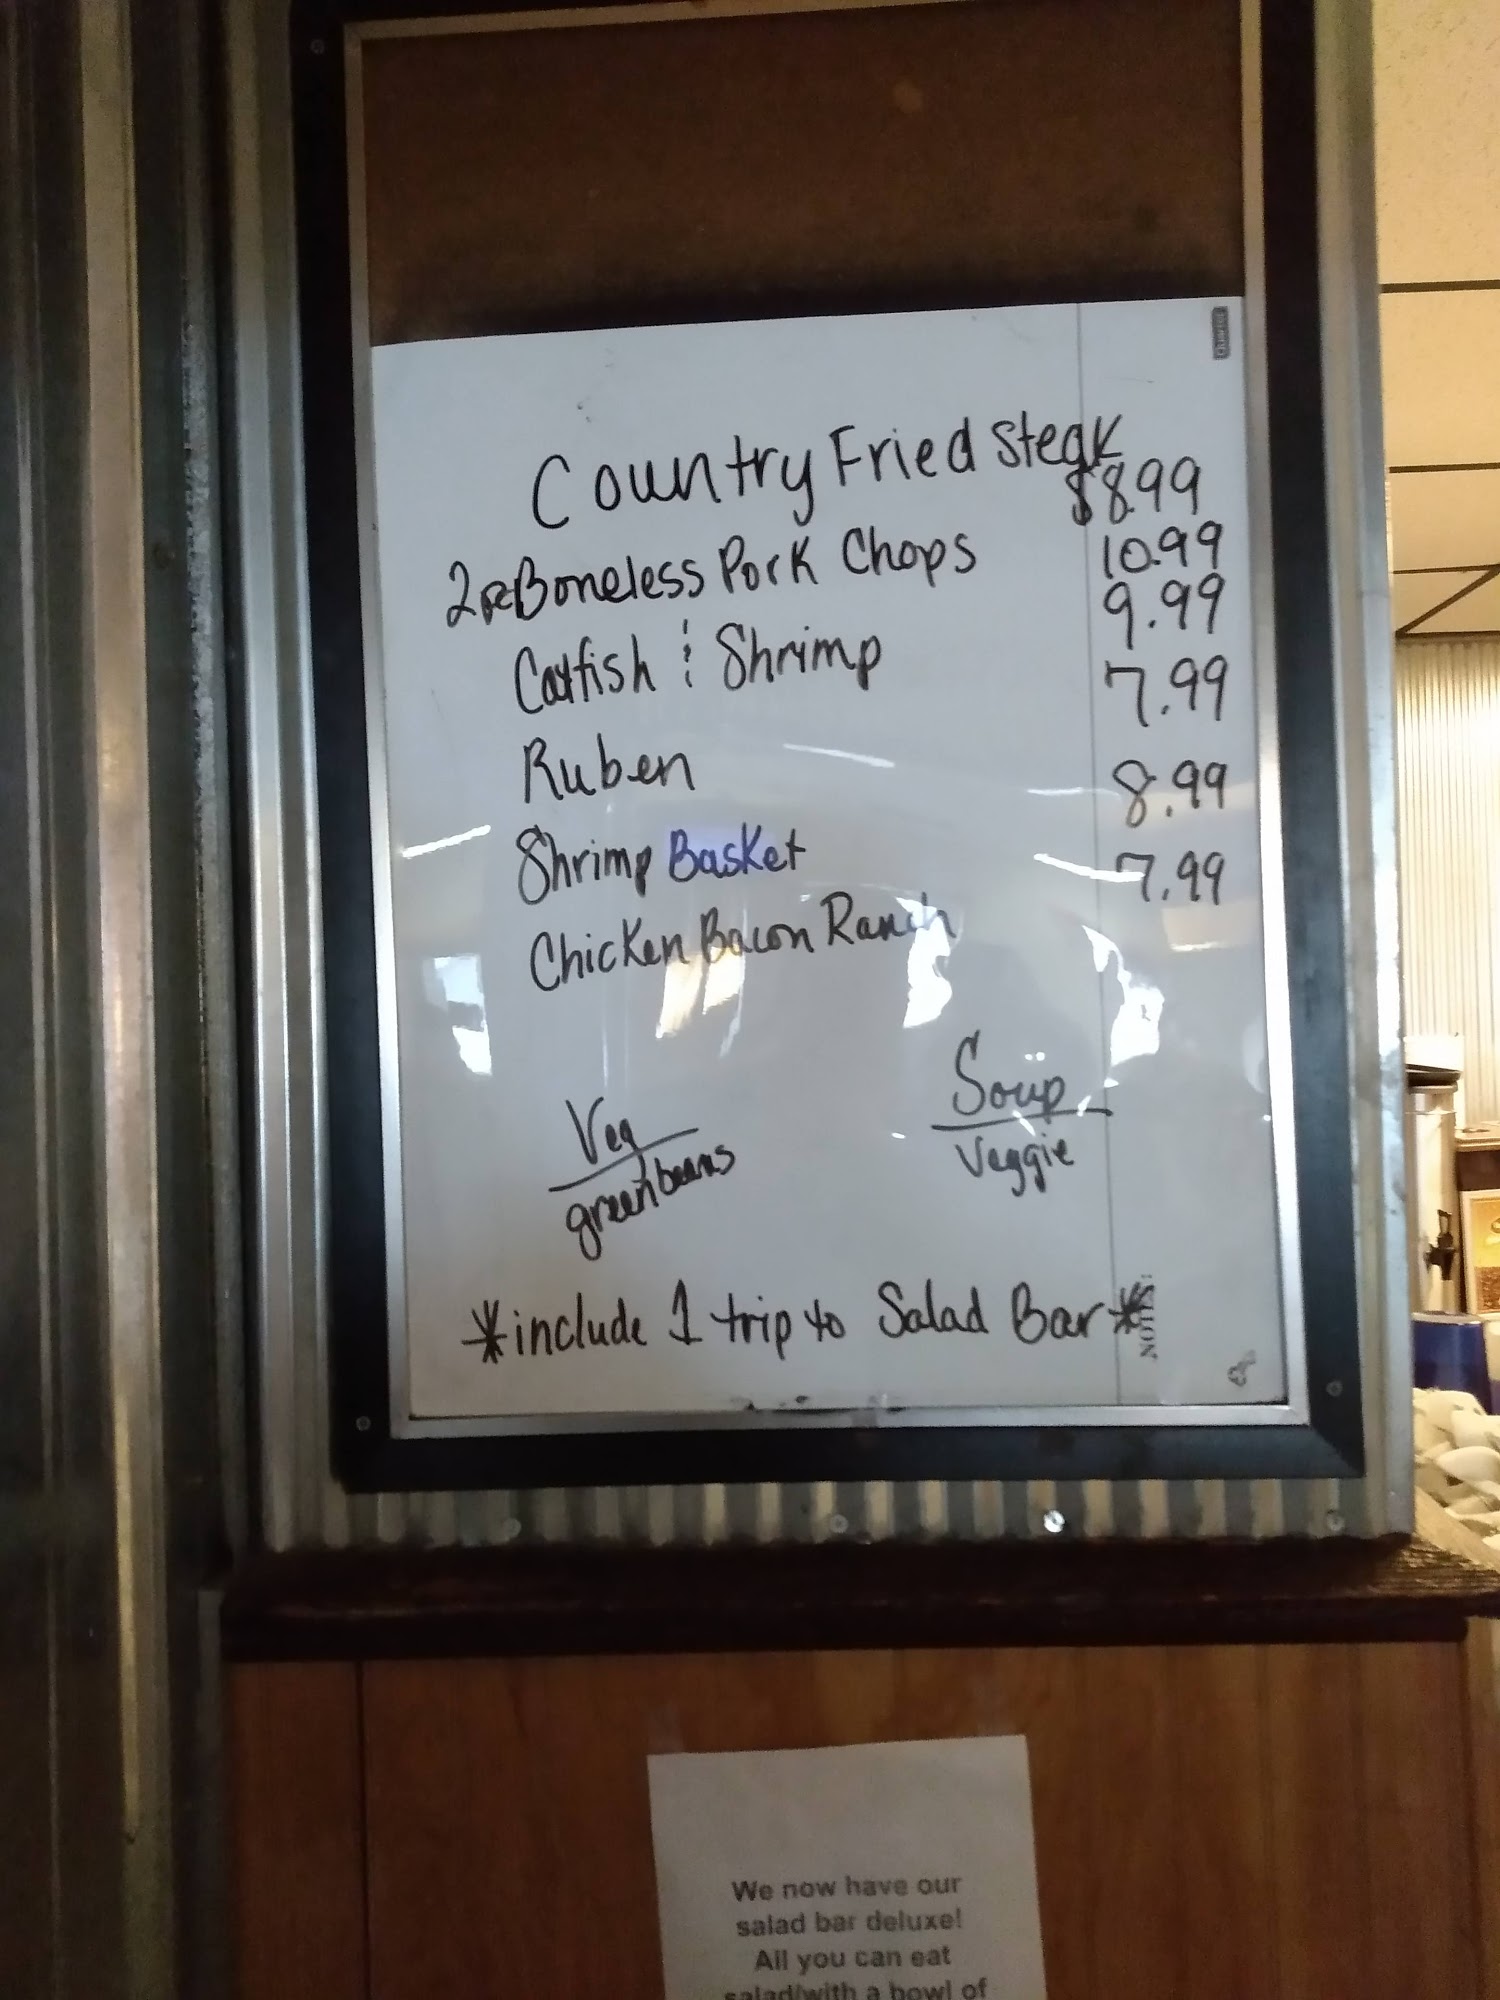 Quartet
Country Fried Steak
$8.99
2pc Boneless Pork Chops 10.99
Catfish & Shrimp 9.99
Ruben 7.99
Shrimp Basket 8.99
Chicken Bacon Ranch 7.99
Veg
green beans
Soup
Veggie
*include 1 trip to Salad Bar*
NOTES:
We now have our
salad bar deluxe!
All you can eat
salad/with a bowl of